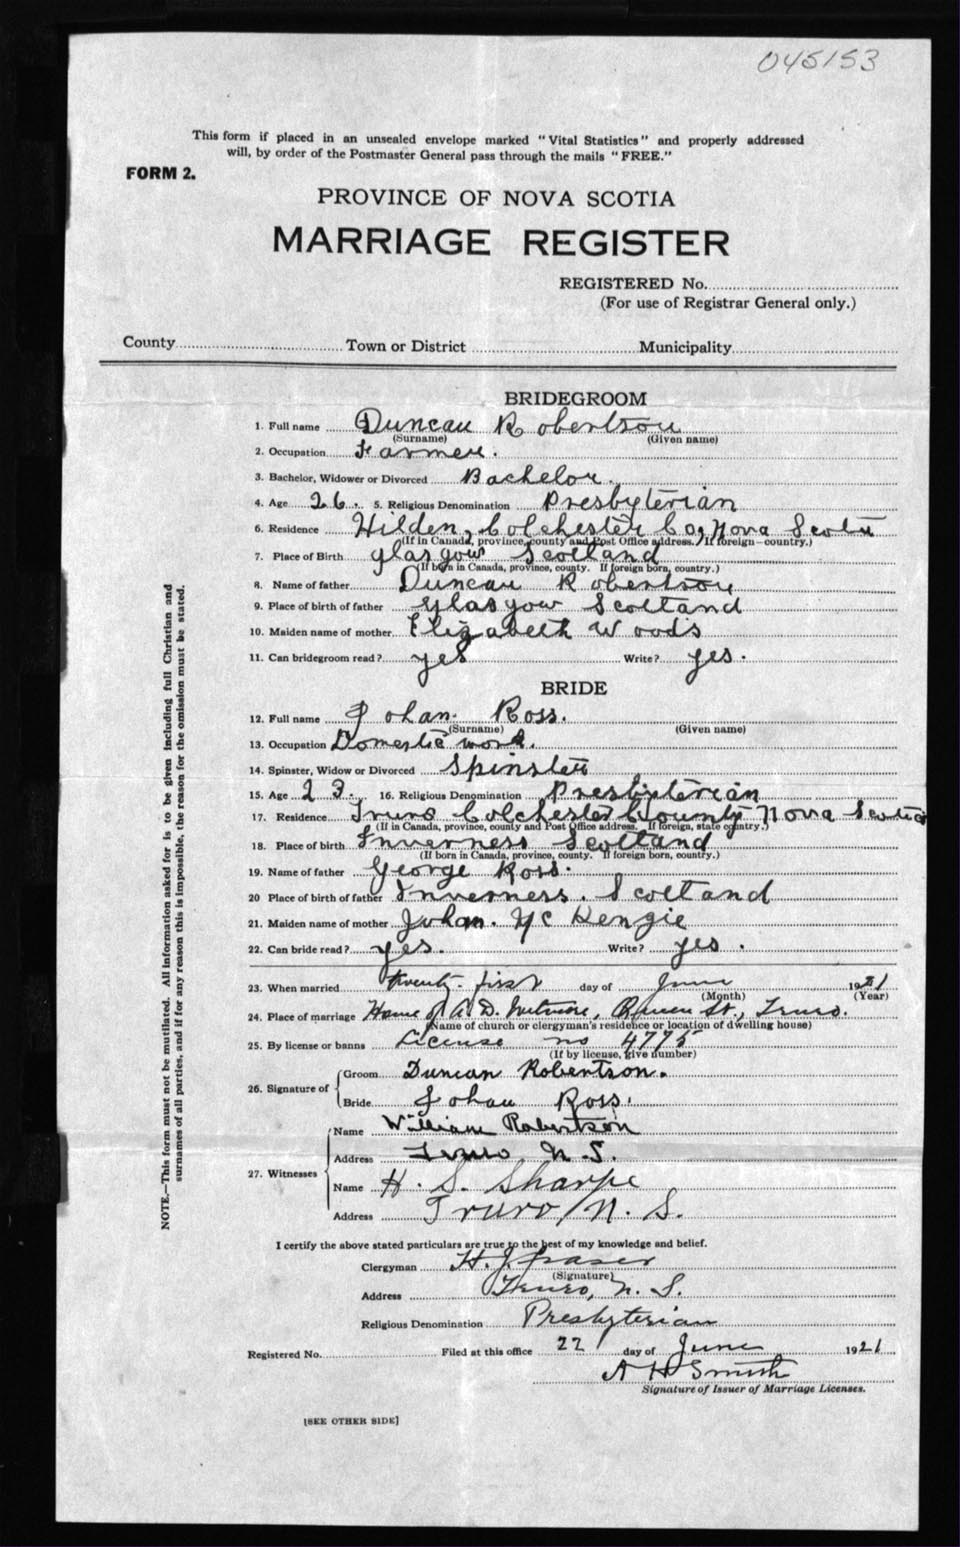 045153
This form if placed in an unsealed envelope marked "Vital Statistics" and properly addressed
will, by order of the Postmaster General pass through the mails "FREE."
FORM 2.
PROVINCE OF NOVA SCOTIA
MARRIAGE REGISTER
REGISTERED No.
(For use of Registrar General only.)
County Town or District Municipality
BRIDEGROOM
1. Full name Duncan Robertson
(Surname) (Given name)
2. Occupation Farmer.
3. Bachelor, Widower or Divorced Bachelor.
4. Age 26. 5. Religious Denomination Presbyterian
6. Residence Hilden, Colchester Co, Nova Scotia
(If in Canada, province, county and Post Office address. If foreign—country.)
7. Place of Birth Glasgow Scotland
(If born in Canada, province, county. If foreign born, country.)
8. Name of father Duncan Robertson
9. Place of birth of father Glasgow Scotland
10. Maiden name of mother Elizabeth Woods
11. Can bridegroom read? yes Write? yes.
BRIDE
12. Full name Johan Ross.
(Surname) (Given name)
13. Occupation Domestic work.
14. Spinster, Widow or Divorced Spinster
15. Age 23. 16. Religious Denomination Presbyterian
17. Residence Truro Colchester County Nova Scotia
(If in Canada, province, county and Post Office address. If foreign, state country.)
18. Place of birth Inverness Scotland
(If born in Canada, province, county. If foreign born, country.)
19. Name of father George Ross.
20 Place of birth of father Inverness. Scotland
21. Maiden name of mother Johan. Mc Kengie
22. Can bride read? yes. Write? yes.
23. When married twenty-first day of June 1921
(Month) (Year)
24. Place of marriage Home of A. D. Queen St., Truro.
(Name of church or clergyman's residence or location of dwelling house)
25. By license or banns License no 4775
(If by license, give number)
26. Signature of Groom Duncan Robertson.
Bride Johan Ross.
27. Witnesses Name William Robertson
Address Truro N. S.
Name H. S. Sharpe
Address Truro, N. S.
I certify the above stated particulars are true to the best of my knowledge and belief.
Clergyman H. J. Fraser
(Signature)
Address Truro, N. S.
Religious Denomination Presbyterian
Registered No. Filed at this office 22 day of June 1921
A H Smith
Signature of Issuer of Marriage Licenses.
[SEE OTHER SIDE]
NOTE.—This form must not be mutilated. All information asked for is to be given including full Christian and
surnames of all parties, and if for any reason this is impossible, the reason for the omission must be stated.